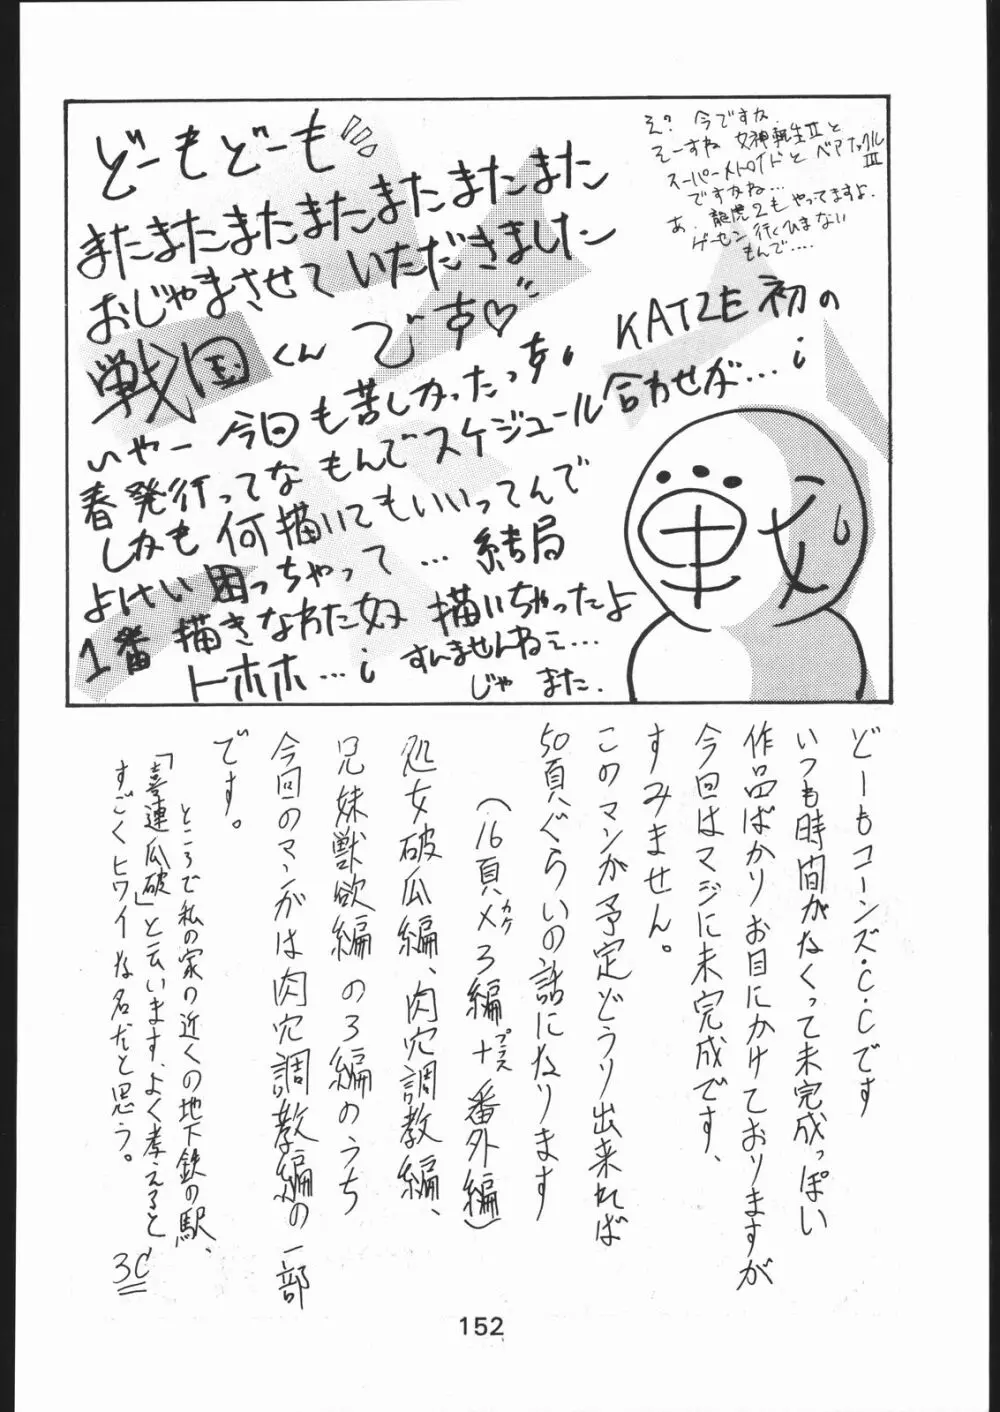 どーもどーも
またまたまたまたまたまたまた
おじゃまさせていただきました
戦国くんです♡
いやー今回も苦しかったっす。KATZE初の
春発行ってなもんでスケジュール合わせが…
しかも何描いてもいいってんで
よけい困っちゃって…結局
1番描きなれた奴描いちゃったよ
トホホ…すんませんねェ…
じゃまた.
え?今ですか
そーすね女神転生Ⅱと
スーパーメトロイドとベアナックルⅢ
ですかね…
あ、龍虎2もやってますよ.
ゲーセン行くひまない
もんで….
どーもコーンズ・C・Cです
いつも時間がなくって未完成っぽい
作品ばかりお目にかけておりますが
今回はマジに未完成です、
すみません。
このマンガ予定どうり出来れば
50頁ぐらいの話になります
(16頁×カケ3編+プラス番外編)
処女破瓜編、肉穴調教編、
兄妹獣欲編の3編のうち
今回のマンガは肉穴調教編の一部
です。
ところで私の家の近くの地下鉄の駅、
「喜連瓜破」と云います、よく考えると、
すごくヒワイな名だと思う。
3C
152